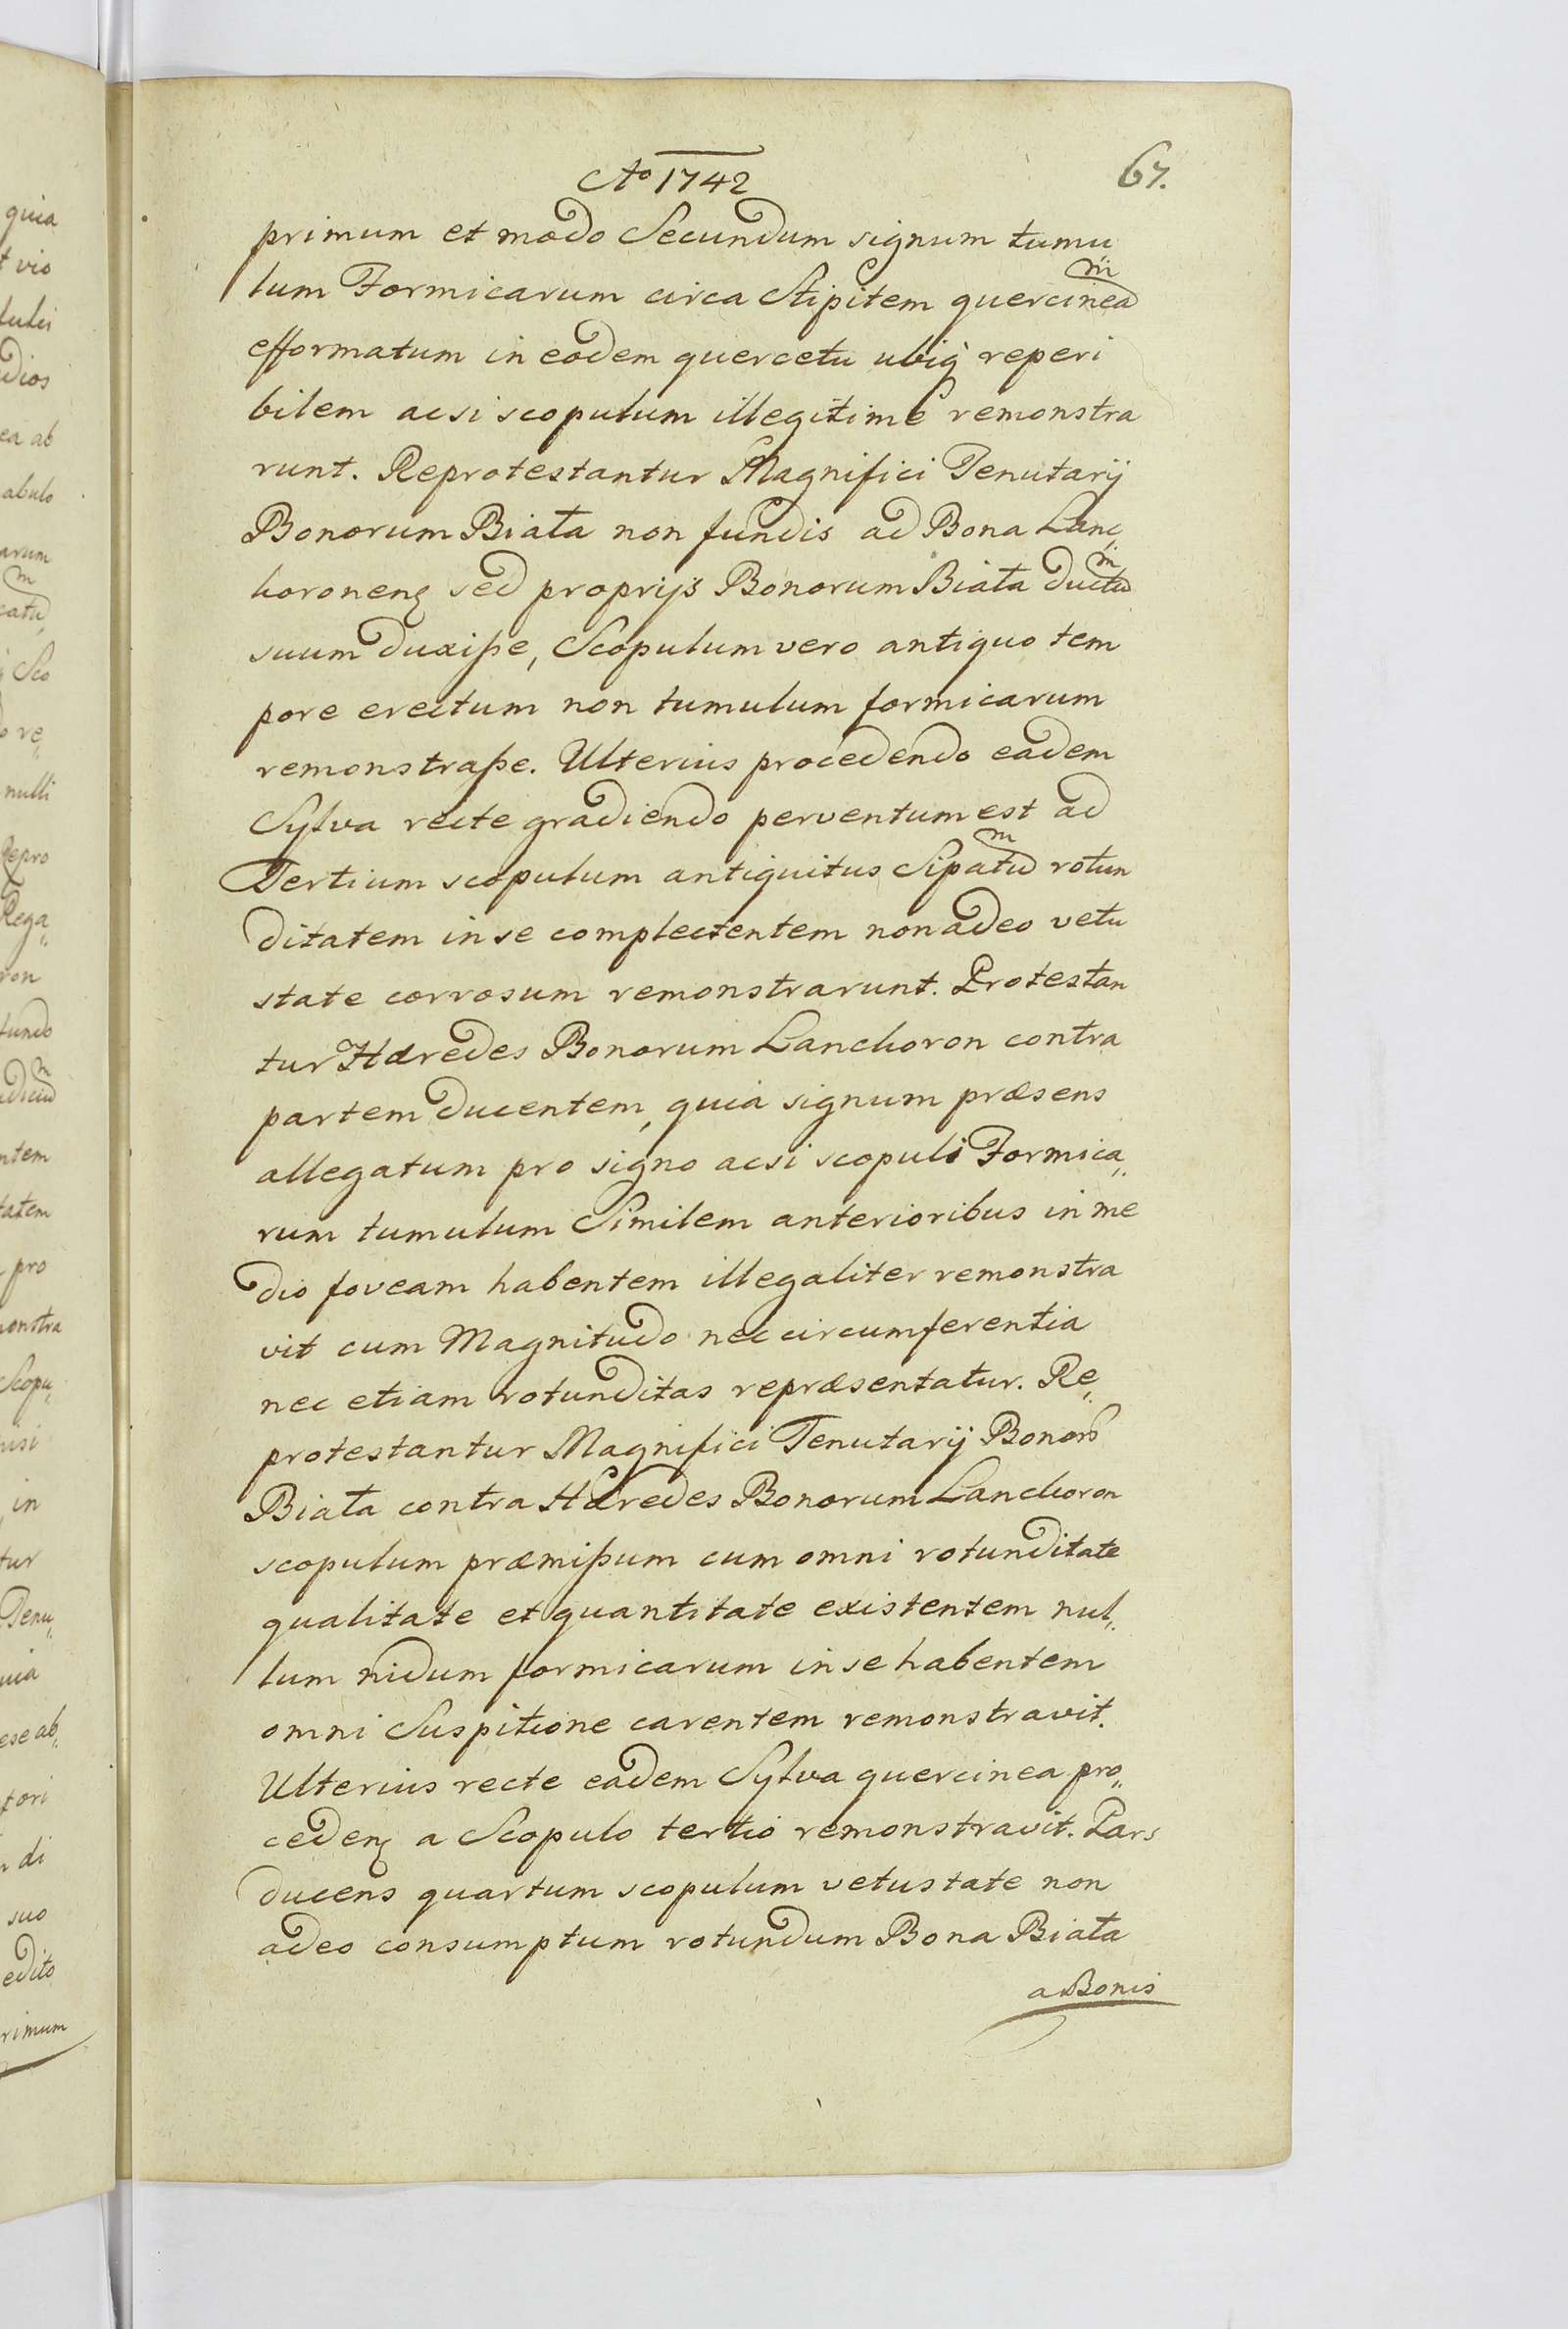 Ao 1742
67.
primum et modo Secundum signum tumu
lum Formicarum circa Stipitem quercineam
efformatum in eodem quercetu ubiq reperi
bilem acsi scopulum illegitime remonstra
runt. Reprotestantur Magnifici Tenutarij
Bonorum Biała non fundis ad Bona Lanc„
koronen sed proprijs Bonorum Biała ductum
suum duxiße, Scopulum vero antiquo tem
pore erectum non tumulum formicarum
remonstraße. Ulterius procedendo eadem
Sylva recte gradiendo perventum est ad
Tertium scopulum antiquitus Sipatum rotun
ditatem in se complectentem non adeo vetu
state corrosum remonstrarunt. Protestan
tur Hæredes Bonorum Lanckoron contra
partem ducentem, quia signum præsens
allegatum pro signo acsi scopuli Formica„
rum tumulum Similem anterioribus in me
dio foveam habentem illegaliter remonstra
vit cum Magnitudo nec circumferentia
nec etiam rotunditas repræsentatur. Re„
protestantur Magnifici Tenutarij Bonor
Biała contra Hæredes Bonorum Lanckoron
scopulum præmißum cum omni rotunditate
qualitate et quantitate existentem nul„
lum nidum formicarum in se habentem
omni Suspitione carentem remonstravit.
Ulterius recte eadem Sylva quercinea pro„
ceden a Scopulo tertio remonstravit. Pars
ducens quartum scopulum vetustate non
adeo consumptum rotundum Bona Biała
a Bonis
quia
vio
dios
ea ab
abulo
arum
Sco
re„
nulli
Repro
Rega„
ron
fundo
ntem
tatem
pro
monstra
Scopu„
in
tur
Tenu„
uia
ese ab„
tori
di
suo
edito
rimum